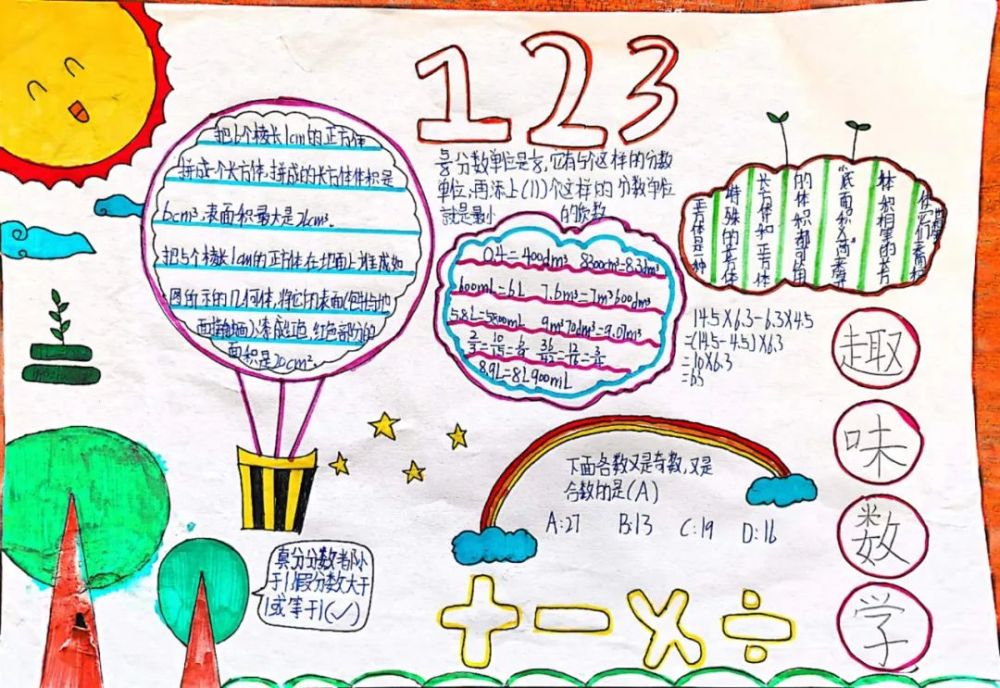 123
把6个棱长1cm的正方体
拼成一个长方体,拼成的长方体体积是
6cm³,表面积最大是26cm².
把5个棱长1cm的正方体在地面上堆成如
图所示的几何体,将它的表面(包括与地
面接触面)漆成红色,红色部分的
面积是20cm².
分数单位是 ,它有5个这样的分数
单位,再添上(11)个这样的分数单位
就是最小 的质数
0.4=400dm³ 8300cm³=8.3dm³
600mL=6L 7.6m³=7m³600dm³
5.8L=5800mL 9m³70dm³=9.07m³
2/3=10/15=6/9 36/42=12/16=3/4
8.9L=8L900mL
正方体是一种
特殊的长方体
长方体和正方体
的体积都可以用
底面积×高
体积相等的长方
14.5×6.3-6.3×4.5
=(14.5-4.5)×6.3
=10×6.3
=63
趣
味
数
学
下面各数又是奇数,又是
合数的是(A)
A:27 B:13 C:19 D:16
真分分数者除小
于1,假分数大于
1或等于1(✓)
+ - × ÷